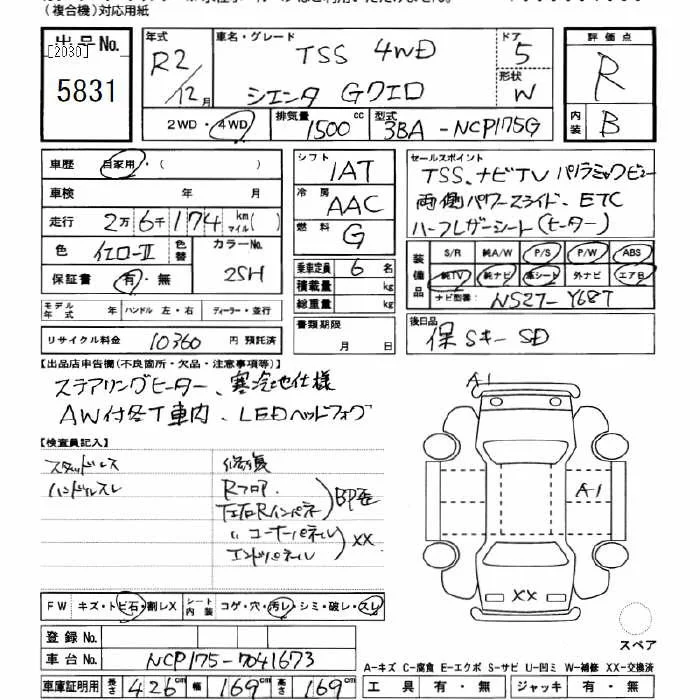 (複合機)対応用紙
出品No.
[2030]
5831
年式
R2/12月
車名・グレード
TSS 4WD
シエンタ Gクエロ
ドア
5
形状
W
評価点
R
内装
B
2WD・4WD
排気量
1500cc
型式
3BA-NCP175G
車歴
自家用・( )
車検 年 月
走行 2万6千174 km マイル( )
色 イエローII
色替
カラーNo.
2SH
保証書 有・無
シフト
IAT
冷房
AAC
燃料
G
乗車定員 6 名
積載量 kg
総重量 kg
書類期限
月 日
セールスポイント
TSS、ナビTV パノラミックビュー
両側パワースライド、ETC
ハーフレザーシート(ヒーター)
装備品
S/R 純A/W P/S P/W ABS
純TV 純ナビ 革シート 外ナビ エアB
ナビ型番: NSZT-Y68T
モデル年式 年 ハンドル 左・右 ディーラー・並行
リサイクル料金 10360 円 預託済
後日品
保 Sキー SD
【出品店申告欄(不良箇所・欠品・注意事項等)】
ステアリングヒーター、寒冷地仕様
AW付冬T車内、LEDヘッドフォグ
【検査員記入】
スタッドレス
ハンドルスレ
修復
Rフロア
左右Rインパネ
〃 コーナーパネル
エンドパネル
XX
A1
A1
XX
スペア
FW キズ・トビ石・割レX
シート内装 コゲ・穴・汚レ・シミ・破レ・スレ
登録No.
車台No. NCP175-7041673
車庫証明用 長さ 426cm 幅 169cm 高さ 169cm
A-キズ C-腐食 E-エクボ S-サビ U-凹ミ W-補修 XX-交換済
工具 有・無 ジャッキ 有・無